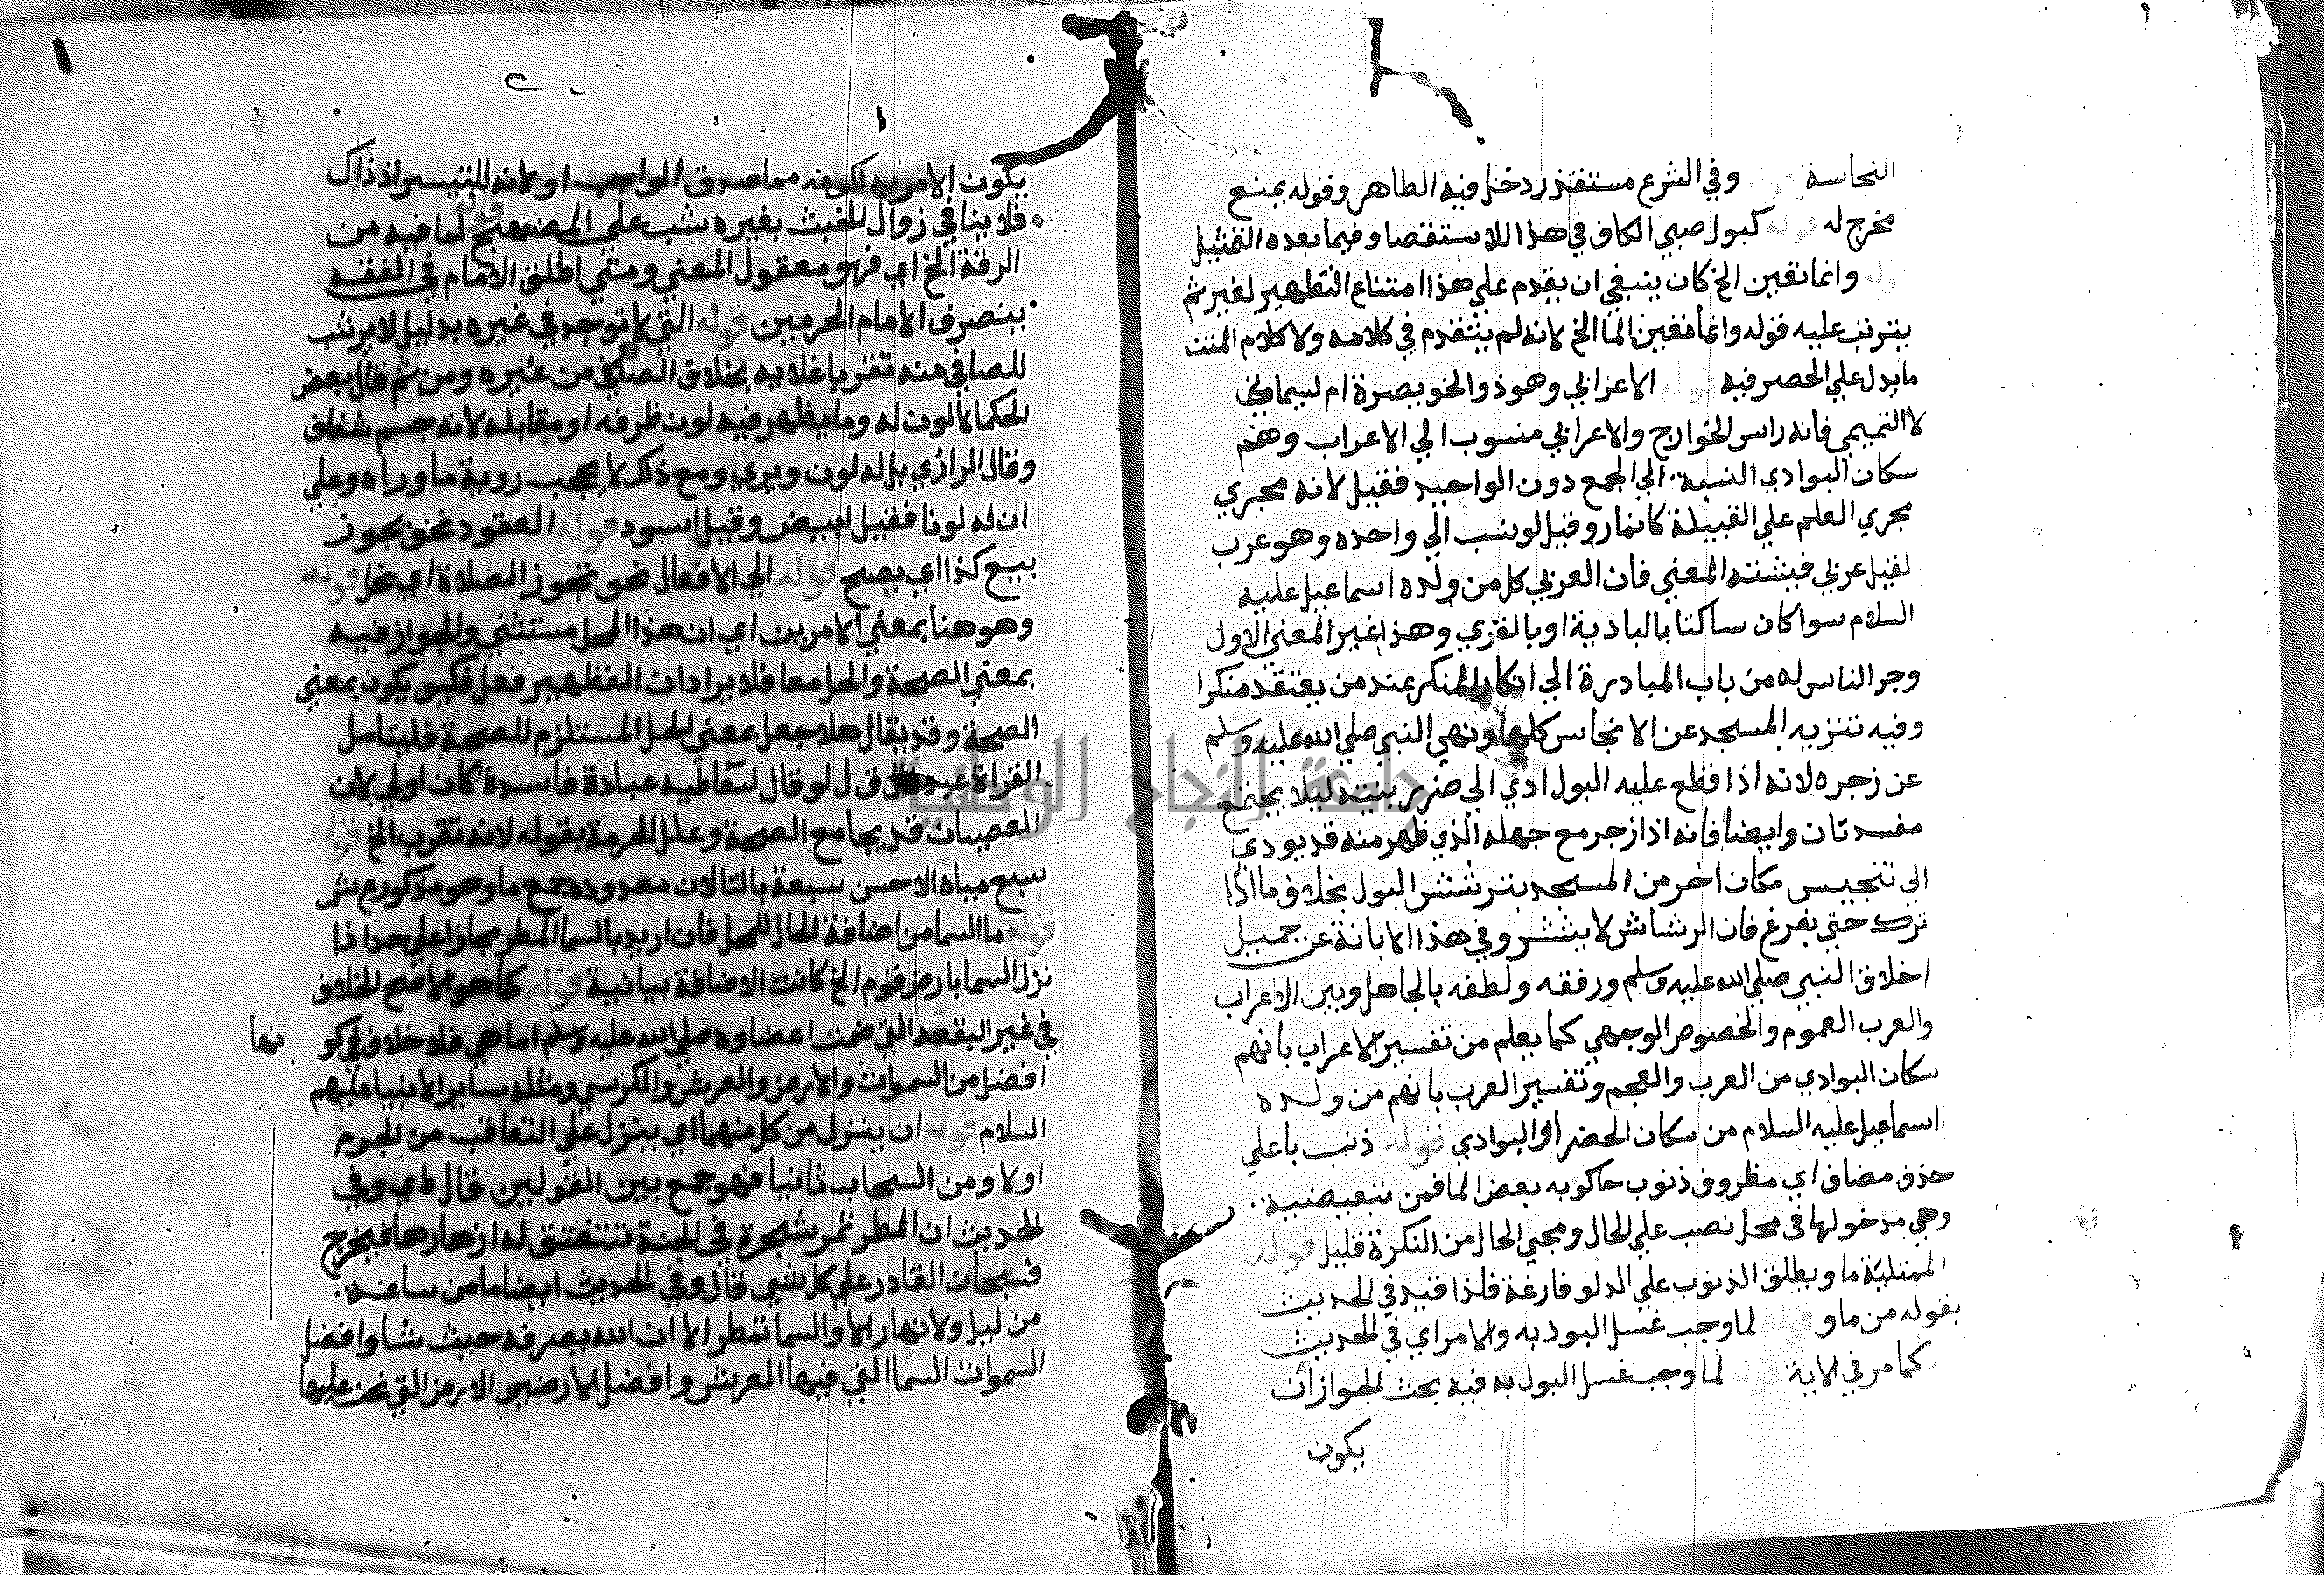 النجاسة وفي الشرع مستقذر دخل فيه الطاهر وقوله يمنع
مخرج له قوله كبول صبي الكاف في هذا للاستقصا وفيما بعده للتمثيل
قوله وانما تعين الخ كان ينبغي ان يقدم علي هذا امتناع التطهير لغير ثم
يترتب عليه قوله وانما تعين الما الخ لانه لم يتقدم في كلامه ولا كلام المتن
ما يدل علي الحصر فيه الاعرابي وهو ذو الخويصرة ام ليماني
لا التميمي فانه راس الخوارج والاعرابي منسوب الي الاعراب وهم
سكان البوادي النسبة الي الجمع دون الواحد فقيل لانه مجري
مجري العلم علي القبيلة كانمار وقيل لو نسب الي واحده وهو عرب
لقيل عربي فيشتبه المعني فان العربي كل من ولده اسماعيل عليه
السلام سوا كان ساكنا بالبادية او بالقري وهذا غير المعني الاول
وجر الناس له من باب المبادرة الي انكار المنكر عند من يعتقد منكرا
وفيه تنزيه المسجد عن الانجاس كلها ونهي النبي صلي الله عليه وسلم
عن زجره لانه اذا قطع عليه البول ادي الي ضرر بنيته ليلا يجتمع
مفسدتان وايضا فانه اذا زجر مع جهله الذي ظهر منه قد يودي
الي تنجيس مكان اخر من المسجد بترشش البول بخلاف ما اذا
ترك حتي يفرغ فان الرشاش لا ينتشر وفي هذا الابانة عن جميل
اخلاق النبي صلي الله عليه وسلم ورفقه ولطفه بالجاهل وبين الاعراب
والعرب العموم والخصوص الوجهي كما يعلم من تفسير الاعراب بانهم
سكان البوادي من العرب والعجم وتفسير العرب بانهم من ولده
اسماعيل عليه السلام من سكان الحضر او البوادي قوله ذنب باعلي
حذف مضاف اي مظروف ذنوب حاكوبه بعض الما فمن تبعيضية
وهي مدخولها في محل نصب علي الحال ومجي الحال من النكرة قليل قوله
الممتلية ما ويطلق الذنوب علي الدلو فارغة فلذا قيد في الحديث
بقوله من ما و لما وجب غسل البول به والامر اي في الحديث
كما مر في الاية لما وجب غسل البول به فيه بحث لجواز ان
يكون
يكون الامر به لكونه مما صدق الواجب او لانه المتيسر اذ ذاك
فلا ينافي زوال الخبث بغيره شب علي المصنف لما فيه من
الرقة الخ اي فهو معقول المعني ومتي اطلق الامام في الفقه
ينصرف الامام الحرمين قوله التي لا توجد في غيره بدليل لا يرتب
للصافي منه تقريبا غلابه بخلاف الصافي من غيره ومن ثم قال بعض
الحكما لا لون له وما يظهر فيه لون ظرفه او مقابله لانه جسم شفاف
وقال الرازي بل له لون ويري ومع ذلك لا يحجب روية ما وراه وعلي
ان له لونا فقيل ابيض وقيل اسود قوله العقود نحو يجوز
بيع كذا اي يصح قوله الي الافعال نحو تجوز الصلاة اي تحل قوله
وهو هنا بمعني الامرين اي ان هذا المحل مستثني والجواز فيه
بمعني الصحة والحل معا فلا يراد ان التطهير فعل فكيف يكون بمعني
الصحة وقد يقال هلا جعل بمعني الحل المستلزم للصحة فليتامل
القراة عبد ق ل لو قال لتعاطيه عبادة فاسدة كان اولي لان
العصيان قد يجامع الصحة وعلل الحرمة بقوله لانه تقرب الخ قوله
سبع مياه الاحسن سبعة بالتا لان معدوده جمع ما وهو مذكور ع ش
قوله ما السما من اضافة الحال للمحل فان اريد بالسما المطر مجازا علي حد اذا
نزل السما بارض قوم الخ كانت الاضافة بيانية قوله كما هو مما فتح الخلاف
في غير البقعة التي ضمت اعضاوه صلي الله عليه وسلم اما هي فلا خلاف في كو نها
افضل من السموات والارض والعرش والكرسي ومثله ساير الانبيا عليهم
السلام قوله ان ينزل من كل منهما اي ينزل علي التعاقب من النجوم
اولا ومن السحاب ثانيا فهو جمع بين القولين قال وفي
الحديث ان المطر ثمر شجرة في الجنة تتفتق له ازهارها فيخرج
فسبحان القادر علي كل شي قال وفي الحديث ايضا ما من ساعة
من ليل ولا نهار الا والسما تمطر الا ان الله يصرفه حيث يشا وافضل
السموات السما التي فيها العرش وافضل الارضين الارض التي نحن عليها